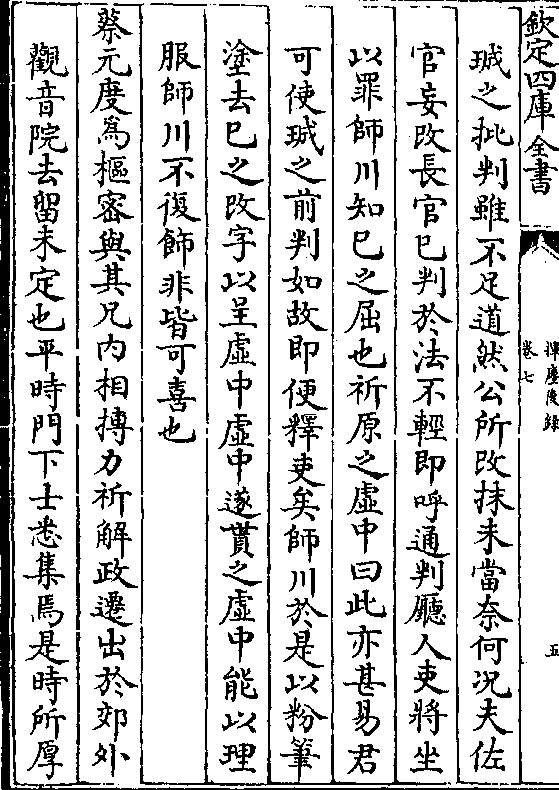 欽定四庫全書
揮麈後録
卷七
五
珹之批判雖不足道然公所改抹未當奈何况夫佐
官妄改長官已判於法不輕即呼通判廳人吏將坐
以罪師川知已之屈也祈原之虚中曰此亦甚易君
可使珹之前判如故即便釋吏矣師川於是以粉筆
塗去已之改字以呈虚中虚中遂貰之虚中能以理
服師川不復飾非皆可喜也
蔡元度爲樞密與其兄内相摶力祈解政遷出於郊外
觀音院去留未定也平時門下士悉集焉是時所厚